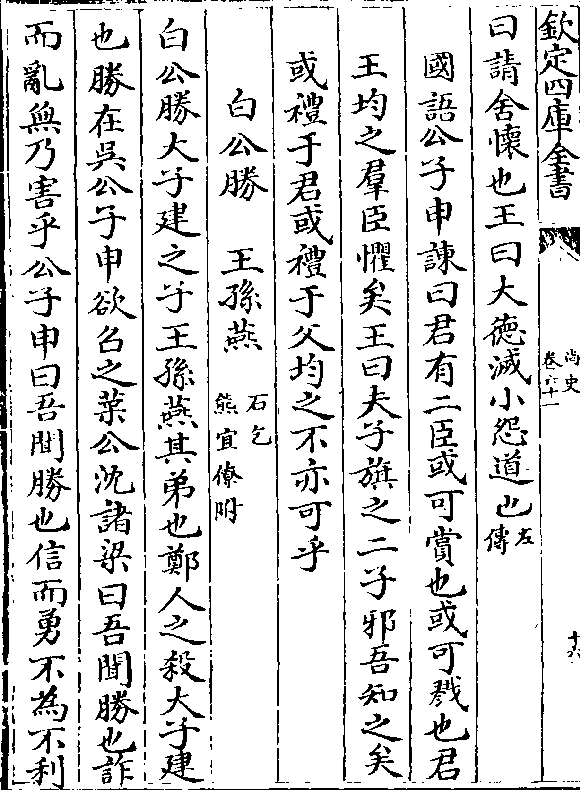 欽定四庫全書
尚史
卷六十一
十六
曰請舍懷也王曰大德滅小怨道也左傳
國語公子申諫曰君有二臣或可賞也或可戮也君
王均之羣臣懼矣王曰夫子旗之二子邪吾知之矣
或禮于君或禮于父均之不亦可乎
白公勝 王孫燕 石乞 熊宜僚附
白公勝大子建之子王孫燕其弟也鄭人之殺大子建
也勝在吳公子申欲召之葉公沈諸梁曰吾聞勝也詐
而亂無乃害乎公子申曰吾聞勝也信而勇不為不利